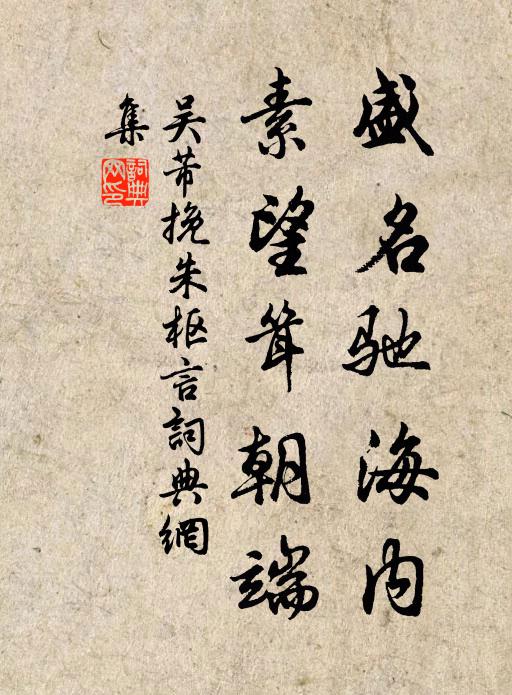 盛名驰海内
素望耸朝端
吴芾挽朱枢言詞典網
集
詞典
网印